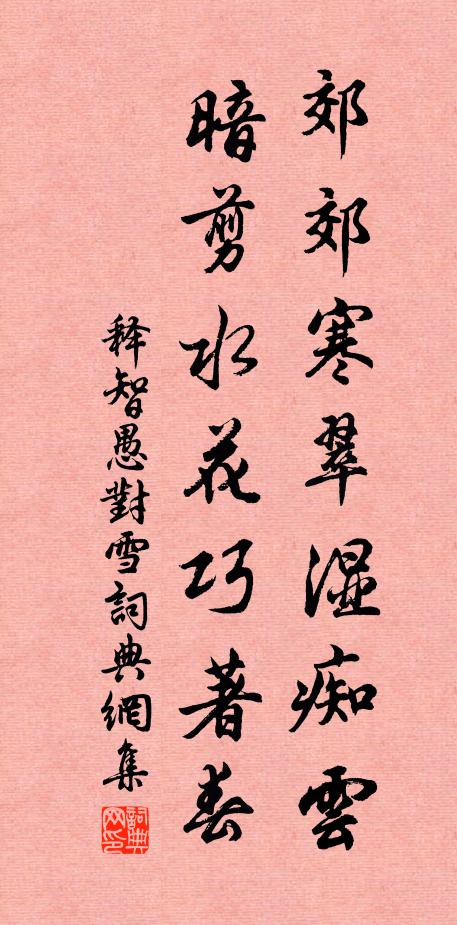 郊郊寒翠湿痴雲
暗剪水花巧著春
释智愚對雪詞典網集
詞典网印